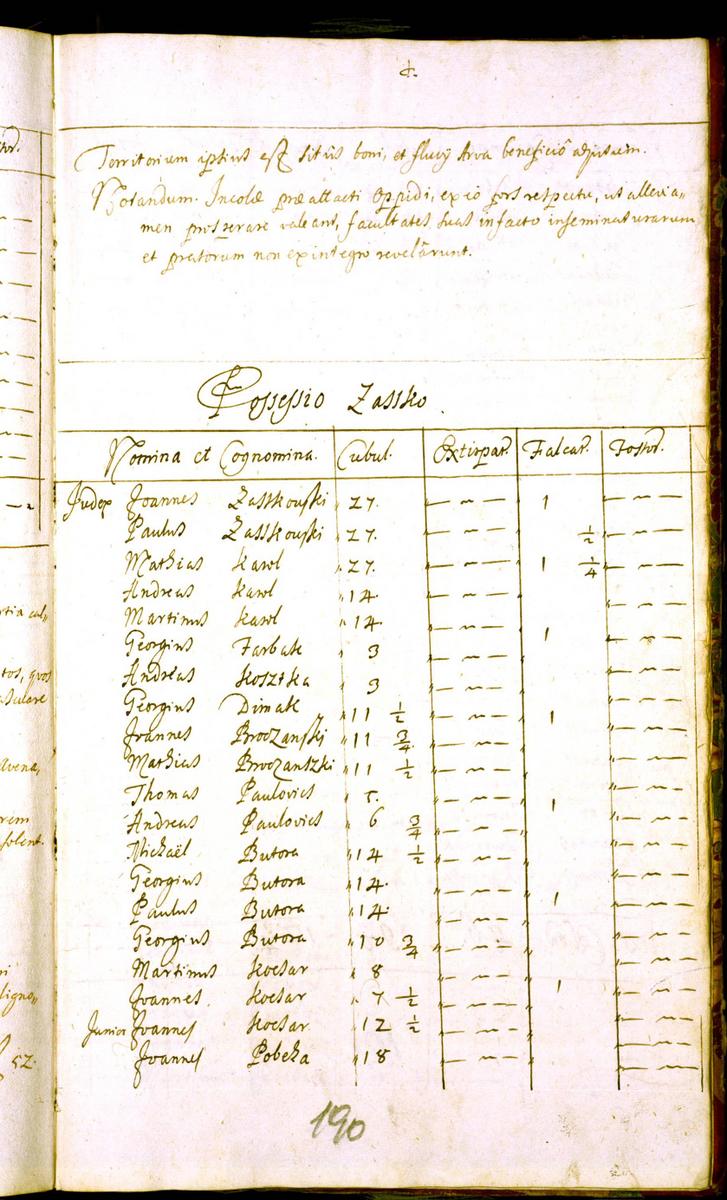 Territorium ipsius est sitûs boni, et fluvÿ Arva beneficiô adjutum.
Notandum. Incolæ præattacti Oppidi, ex eo respectu, ut allevia=
men prosperare valeant, facultates suas in facto inseminaturarum
et pratorum non ex integro revelârunt.
Possessio Zassko.
Nomina et Cognomina. Cubul. Extirpat. Falcat.
Judex Joannes Zasskouski 27. 1
Paulus Zasskouski 27. 1/2
Mathias Karol 27. 1 1/4
Andreas Karol 14.
Martinus Karol 14.
Georgius Farbak 3 1
Andreas Kosztka 3
Georgius Dimak 11 1/2 1
Joannes Broczanszkj 11 3/4
Mathias Broczanszki 11 1/2
Thomas Paulovics 1
Andreas Paulovics 6 3/4
Michaël Butora 14 1/2
Georgius Butora 14.
Paulus Butora 14. 1
Georgius Butora 10 3/4
Martinus Kocsar 8
Joannes Kocsar 7 1/2 1
Junior Joannes Kocsar 12 1/2
Joannes Pobeka 18
190
52.